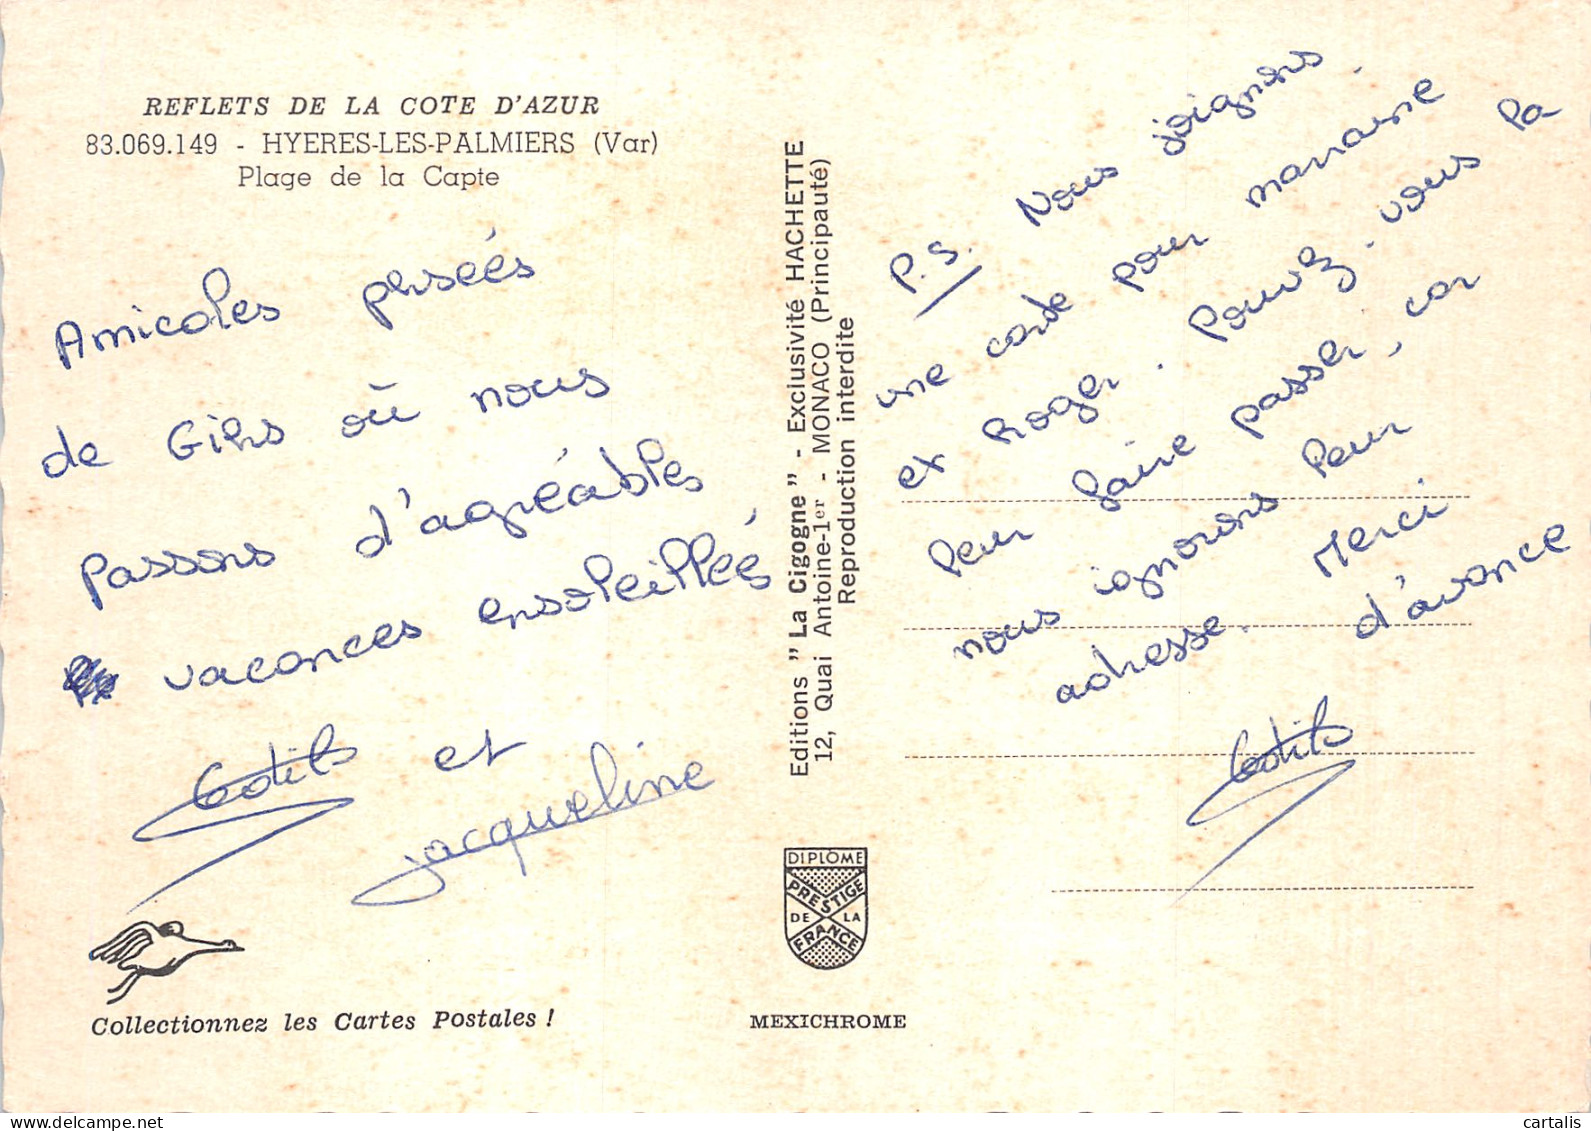 REFLETS DE LA COTE D'AZUR
83.069.149 - HYERES-LES-PALMIERS (Var)
Plage de la Capte
Amicales pensées
de Giens où nous
passons d'agréables
vacances ensoleillées,
Edith et
Jacqueline
Collectionnez les Cartes Postales !
Editions " La Cigogne " - Exclusivité HACHETTE
12, Quai Antoine-1er - MONACO (Principauté)
Reproduction interdite
DIPLOME
PRESTIGE
DE LA
FRANCE
MEXICHROME
P.S. Nous joignons
une carte pour marraine
et Roger. Pouvez-vous la
leur faire passer, car
nous ignorons leur
adresse. Merci
d'avance
Edith
cartalis